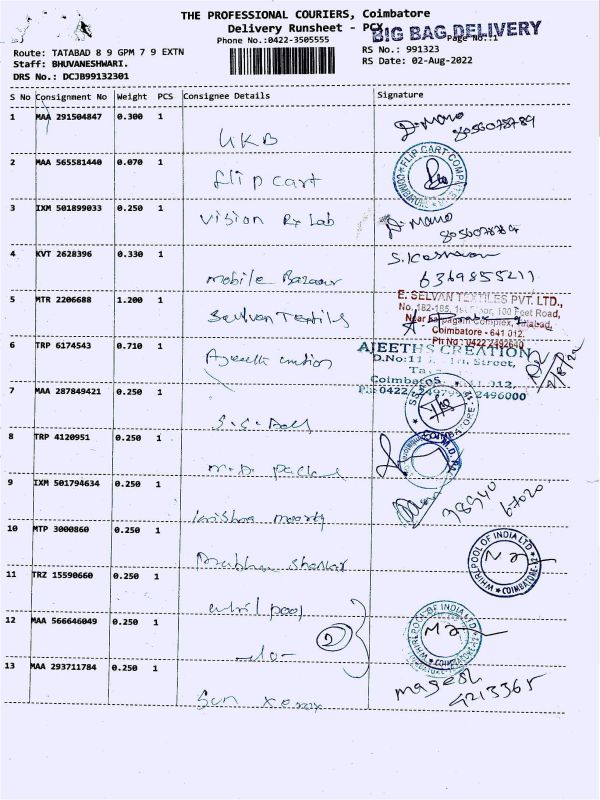 THE PROFESSIONAL COURIERS, Coimbatore
Delivery Runsheet - PCX
BIG BAG DELIVERY
Phone No.:0422-3505555
Page No.:1
Route: TATABAD 8 9 GPM 7 9 EXTN
RS No.: 991323
Staff: BHUVANESHWARI.
RS Date: 02-Aug-2022
DRS No.: DCJB99132301
S No Consignment No Weight PCS Consignee Details Signature
1 MAA 291504847 0.300 1
UKB
D. Mano
8056078789
2 MAA 565581440 0.070 1
flip cart
FLIP CART COMP
COIMBATORE
3 IXM 501899033 0.250 1
Vision Rx Lab
D. Mano
4 KVT 2628396 0.330 1
mobile Bazaar
6369855211
5 MTR 2206688 1.200 1
Selvan Textils
E. SELVAN TEXTILES PVT. LTD.,
No. 182-185, 1st Floor, 100 Feet Road,
Near Kalpagam Complex, Tatabad,
Coimbatore - 641 012.
Ph No : 0422 2492610
6 TRP 6174543 0.710 1
Ajeeth
AJEETHS CREATION
D.No:11 Street,
Coimbatore 012.
Ph: 0422 2496000
2/8/22
7 MAA 287849421 0.250 1
8 TRP 4120951 0.250 1
M.D.
9 IXM 501794634 0.250 1
krishna moorty
10 MTP 3000860 0.250 1
Prabhu shankar
WHIRLPOOL OF INDIA LTD
COIMBATORE-12
11 TRZ 15590660 0.250 1
whirlpool
12 MAA 566646049 0.250 1
-do-
2
WHIRLPOOL OF INDIA LTD
COIMBATORE-12
13 MAA 293711784 0.250 1
Sun xerox
magesh
4213365